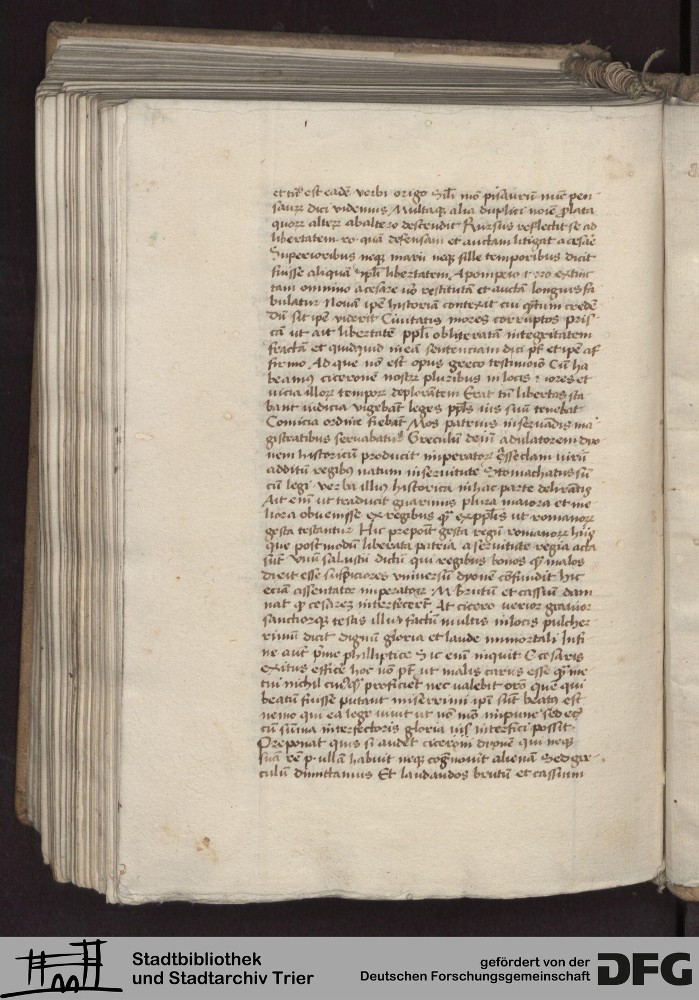 et tn̄ est eadē verbi origo Sil̄i mō pisaurū nūc pen
saurū dici videmus Multaq; alia duplici noīe p̄lata
quorꝝ alterꝝ ab altero descendit Rursus reflectit se ad
libertatem ro quā defensam et auctam litigat a cesaře
Superioribus neq; marii neq; sille temporibus dicit
fuisse aliquā ppl̄i libertatem A pompeio
tam omnino a cesare v̊o restitutā et auctā longius fa
bulatur Nouā ipē historiā contexit cui q̄tum credē
dū sit ipē viderit Ciuitatis mores corruptos pris
cā ut ait libertatē ppl̄i obliteratā integritatem
fractā et quidquid in eā sentenciam dici pt̄ et ipē af
firmo Ad que nō est opus greco testimōio Cū ha
beamꝰ ciceronē nostrꝝ pluribus in locis mores et
vicia illorꝝ temporꝝ deplorātem Erat tn̄ libertas sta
bant iudicia vigebāt leges ppl̄s ius suū tenebat
Comicia ordīe fiebāt Mos patrius in seruādis ma
gistratibus seruabatur Greculū deinī adulatorem dyo
nem historicū producit imperatorꝝ asseclam virū
additū regibꝰ natum in seruitute Stomachatus sū
cū legi verba illiꝰ historica in hac parte delirātis
Ait enī ut traducit guarinus plura maiora et me
liora obuenisse ex regibus q̄ ex ppl̄is ut romanorꝝ
gesta testantur Hic prepoīt gesta regū romanorꝝ hiis
que postmodū liberata patria a seruitute regia acta
sūt Vnū salustii dictū qui regibus bonos q̄ malos
dicit esse suspiciores vniuersū dyonē cōfundit hic
eciā assentator imperatorꝝ M brutū et cassiū dam
nat q̄ cesarē interfecerīt At cicero verior grauior
sanctiorq; testis illud factū multis in locis pulcher
rimū dicit dignū gloria et laude immortali In fi
ne aut̄ prime philliptice Sic enī inquit E cesaris
exitus efficē hoc nō pt̄ ut malis carus esse q̄ me
tui nichil cuiusq̄ proficiet nec valebit orō que qui
beatū fuisse putant miserrimi ipī sūt beatꝰ est
nemo qui ea lege viuit ut nō mō impune sed eciā
cū sūma interfectoris gloria interfici possit
Preponat quis si audet ciceroni dyonē qui neq;
suā rē p. ullā habuit neq; cognouit alienā Sed gre
culū dimittamus Et laudandos brutū et cassium
Stadtbibliothek
und Stadtarchiv Trier
gefördert von der
Deutschen Forschungsgemeinschaft
DFG